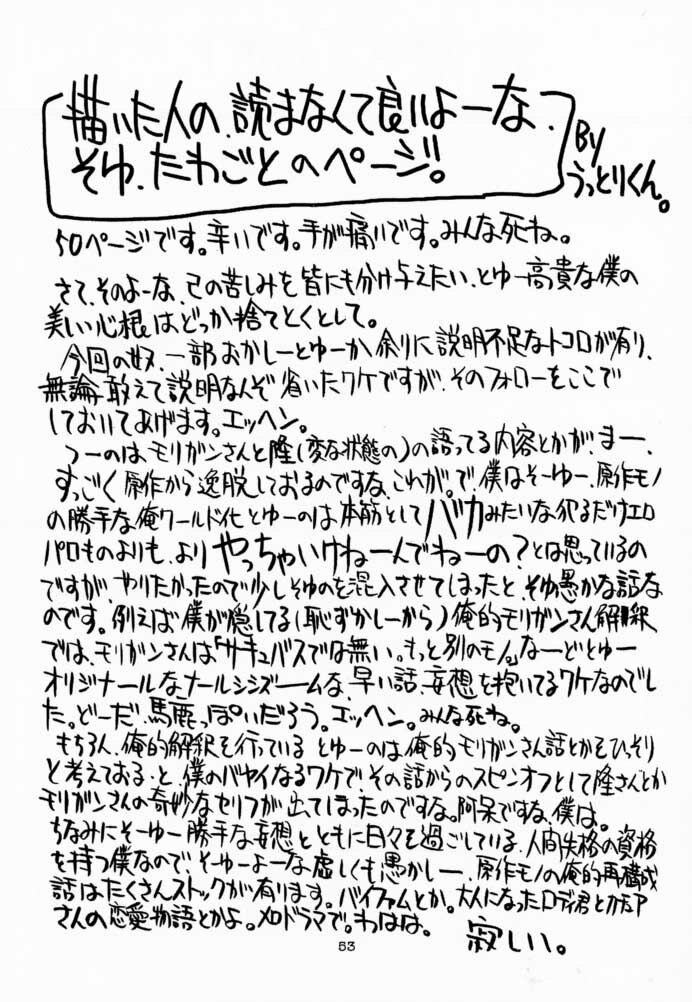 描いた人の、読まなくて良いよーな、
そゆ、たわごとのページ!。
By
うっとりくん。
50ページです。辛いです。手が痛いです。みんな死ね。
さて、そのよーな、己の苦しみを皆にも分け与えたい、とゆー高貴な僕の
美しい心根はどっか捨てとくとして。
今回の奴、一部おかしーとゆーか、余りに説明不足なトコロが有り、
無論、敢えて説明なんぞ省いたワケですが、そのフォローをここで
しておいてあげます。エッヘン。
つーのは、モリガンさんと隆(変な状態の)の語ってる内容とかが、まー、
すっごく原作から逸脱しておるのですな、これが。で、僕はそーゆー、原作モノ
の勝手な俺ワールド化とゆーのは本筋としてバカみたいな犯るだけエロ
パロものよりも、よりやっちゃいけねーんでねーの?とは思っているの
ですが、やりたかったので少しそゆのを混入させてしまったと、そゆ愚かな話な
のです。例えば僕が隠してる(恥ずかしーから)俺的モリガンさん解釈
では、モリガンさんは「サキュバスでは無い。もっと別のモノ」なーどとゆー
オリジナールなナールシシズームな、早い話、妄想を抱いてるワケなのでし
た。どーだ、馬鹿っぽいだろう。エッヘン。みんな死ね。
もちろん、俺的解釈を行っているとゆーのは、俺的モリガンさん話とかをひっそり
と考えておると、僕のバヤイなるワケで、その話からのスピンオフとして隆さんとか
モリガンさんの奇妙なセリフが出てしまったのですな。阿呆ですな、僕は。
ちなみにそーゆー勝手な妄想とともに日々を過ごしている、人間失格の資格
を持つ僕なので、そーゆーよーな虚しくも愚かしー、原作モノの俺的再構成
話はたくさんストックが有ります。バイファムとか。大人になったロディ君とカチュア
さんの恋愛物語とかよ。メロドラマで。わはは。
寂しい。
53